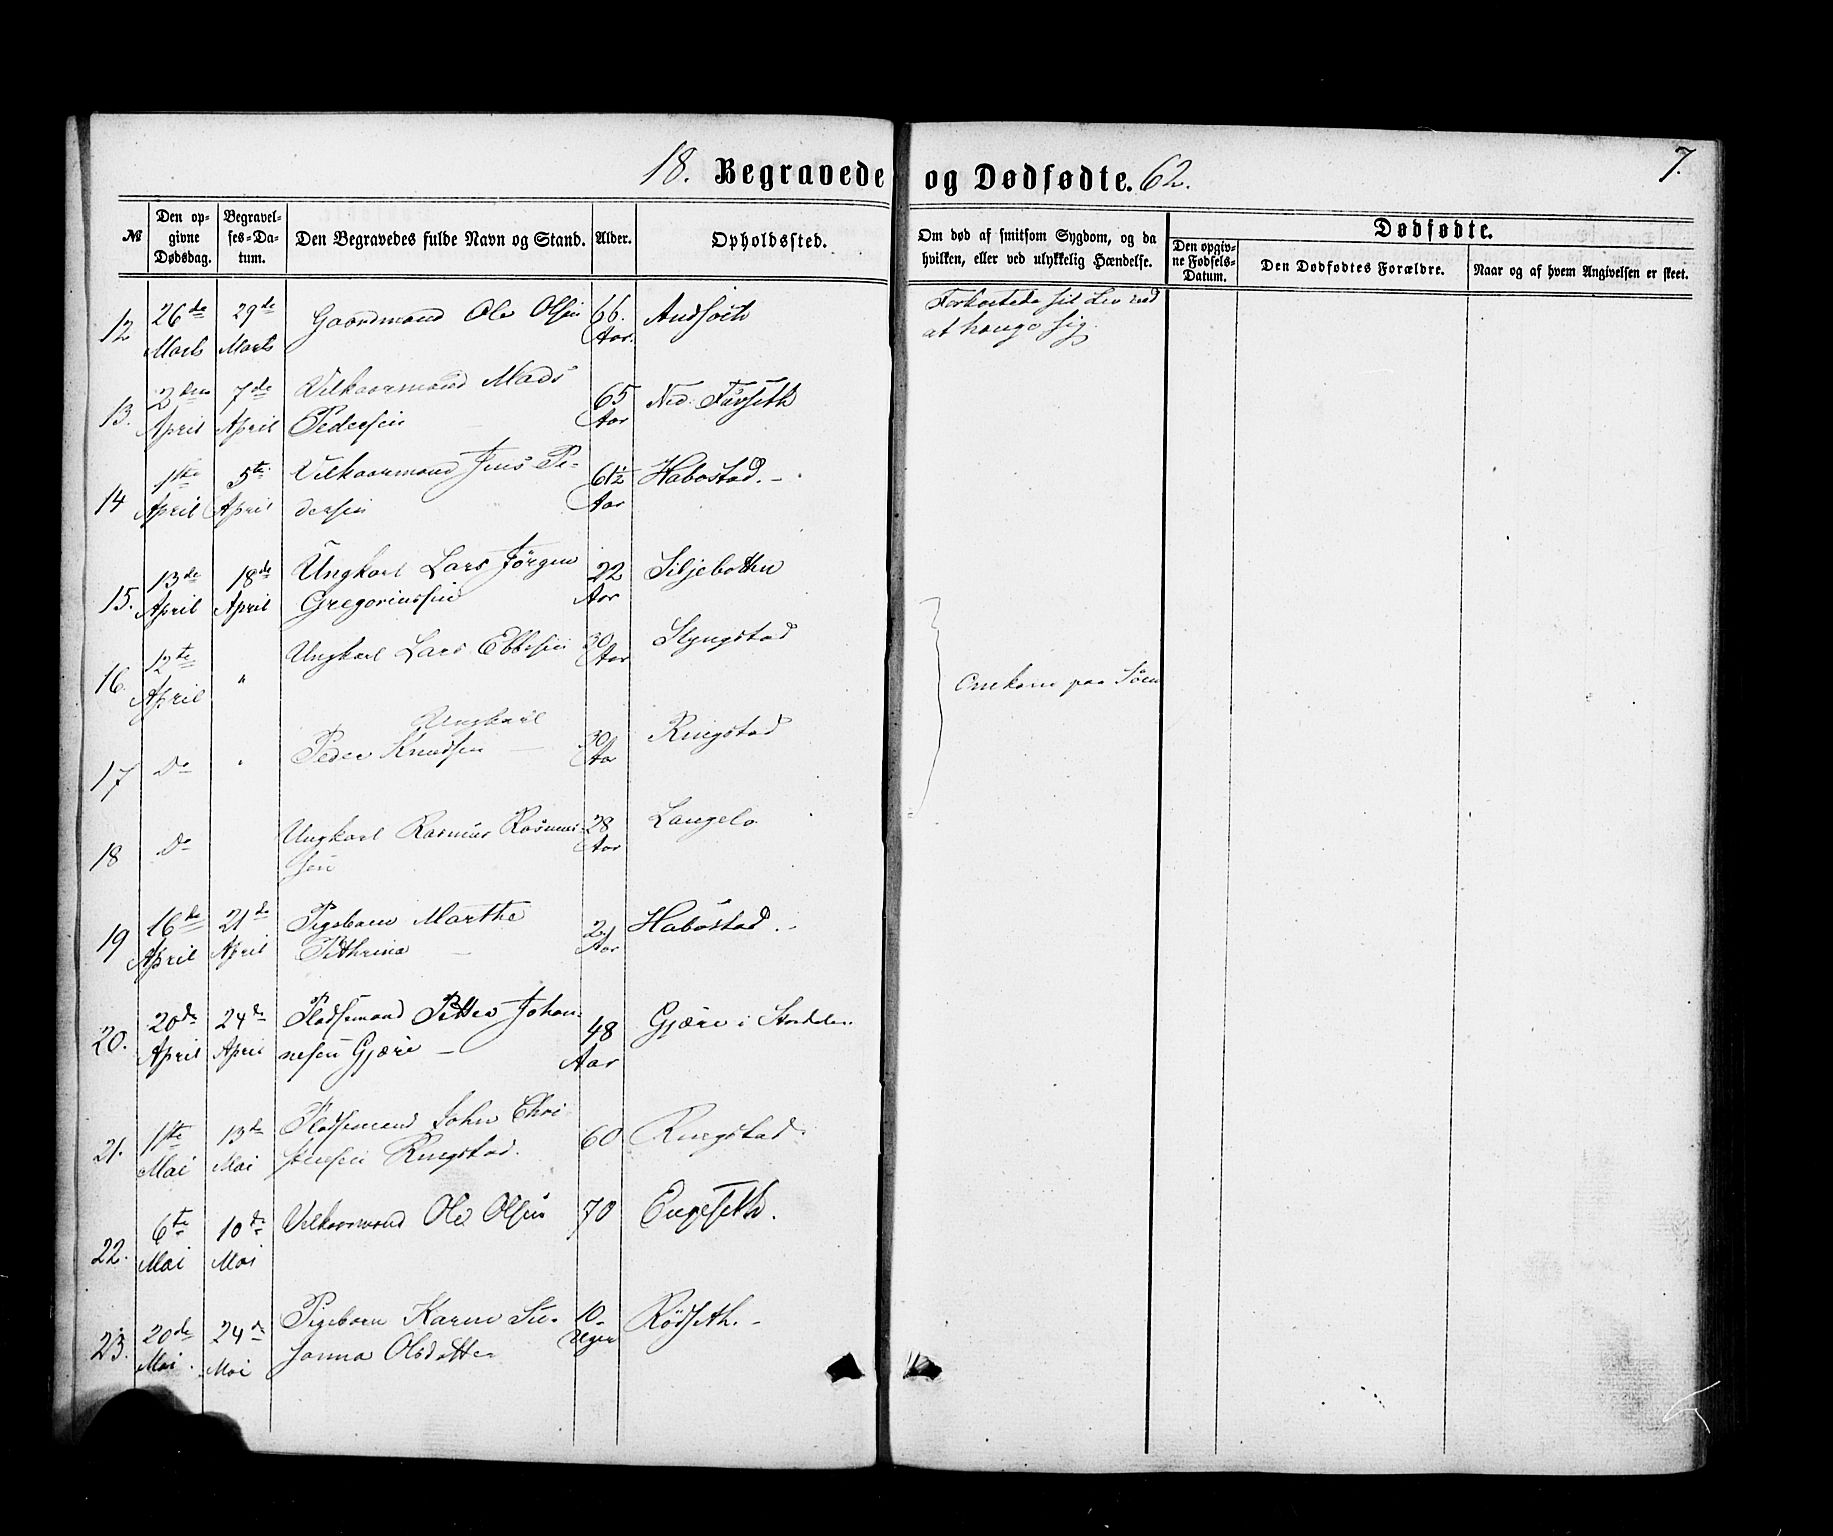 18. Begravede og Dødfødte. 62.
7.
№
Den op-
givne
Dødsdag.
Begravel-
ses-Da-
tum.
Den Begravedes fulde Navn og Stand.
Alder.
Opholdssted.
Om død af smitsom Sygdom, og da
hvilken, eller ved ulykkelig Hændelse.
Dødfødte.
Den opgiv-
ne Fødsels-
Datum.
Den Dødfødtes Forældre.
Naar og af hvem Angivelsen er skeet.
12 26de 29de Gaardmand Ole Olsen 66. Forkortede sit Liv ved
Marts Marts Aar. at hænge sig.
13. 7de Vilkaarmand Mads 65 Ned: Furseth
April April Pedersen Aar
14 1ste 5te Vilkaarmand Jens Pe- 61½ Habostad. -
April April dersen Aar
15. 13de 18de Ungkarl Lars Jørgen 22 Siljebotten
April April Gregoriussen Aar
16. 12te " Ungkarl Lars Ebbesen 30 Slyngstad
April Aar Omkom paa Søen
Ungkarl
17 Do " Peder Knudsen - 30 Ringstad
Aar
18 Do Ungkarl Rasmus Rasmus- 28 Langelo
sen Aar
19 16de 21de Pigebarn Marthe 2 Habostad. -
April April Pethrina - Aar
20. 20de 24de Pladsemand Petter Johan- 48 Gjære i Stordalen
April April nesen Gjære - Aar
21. 1ste 13de Pladsemand John Chri- 60 Ringstad.
Mai Mai stensen Ringstad.
22. 6te 10de Vilkaarmand Ole Olsen 70 Engeseth.
Mai Mai
23. 20de 24de Pigebarn Karen Su- 10 Rødseth. -
Mai. Mai sanna Olsdatter Uger